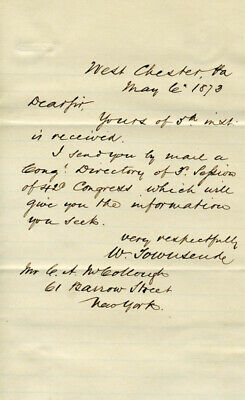 West Chester, Pa
May 6th 1873
Dear Sir,
Yours of 5th inst.
is received.
I send you by mail a
Congl Directory of 3d Session
of 42d Congress which will
give you the information
you seek.
very respectfully
W. Townsend
Mr C. A. McCollough
61 Barrow Street
New York.